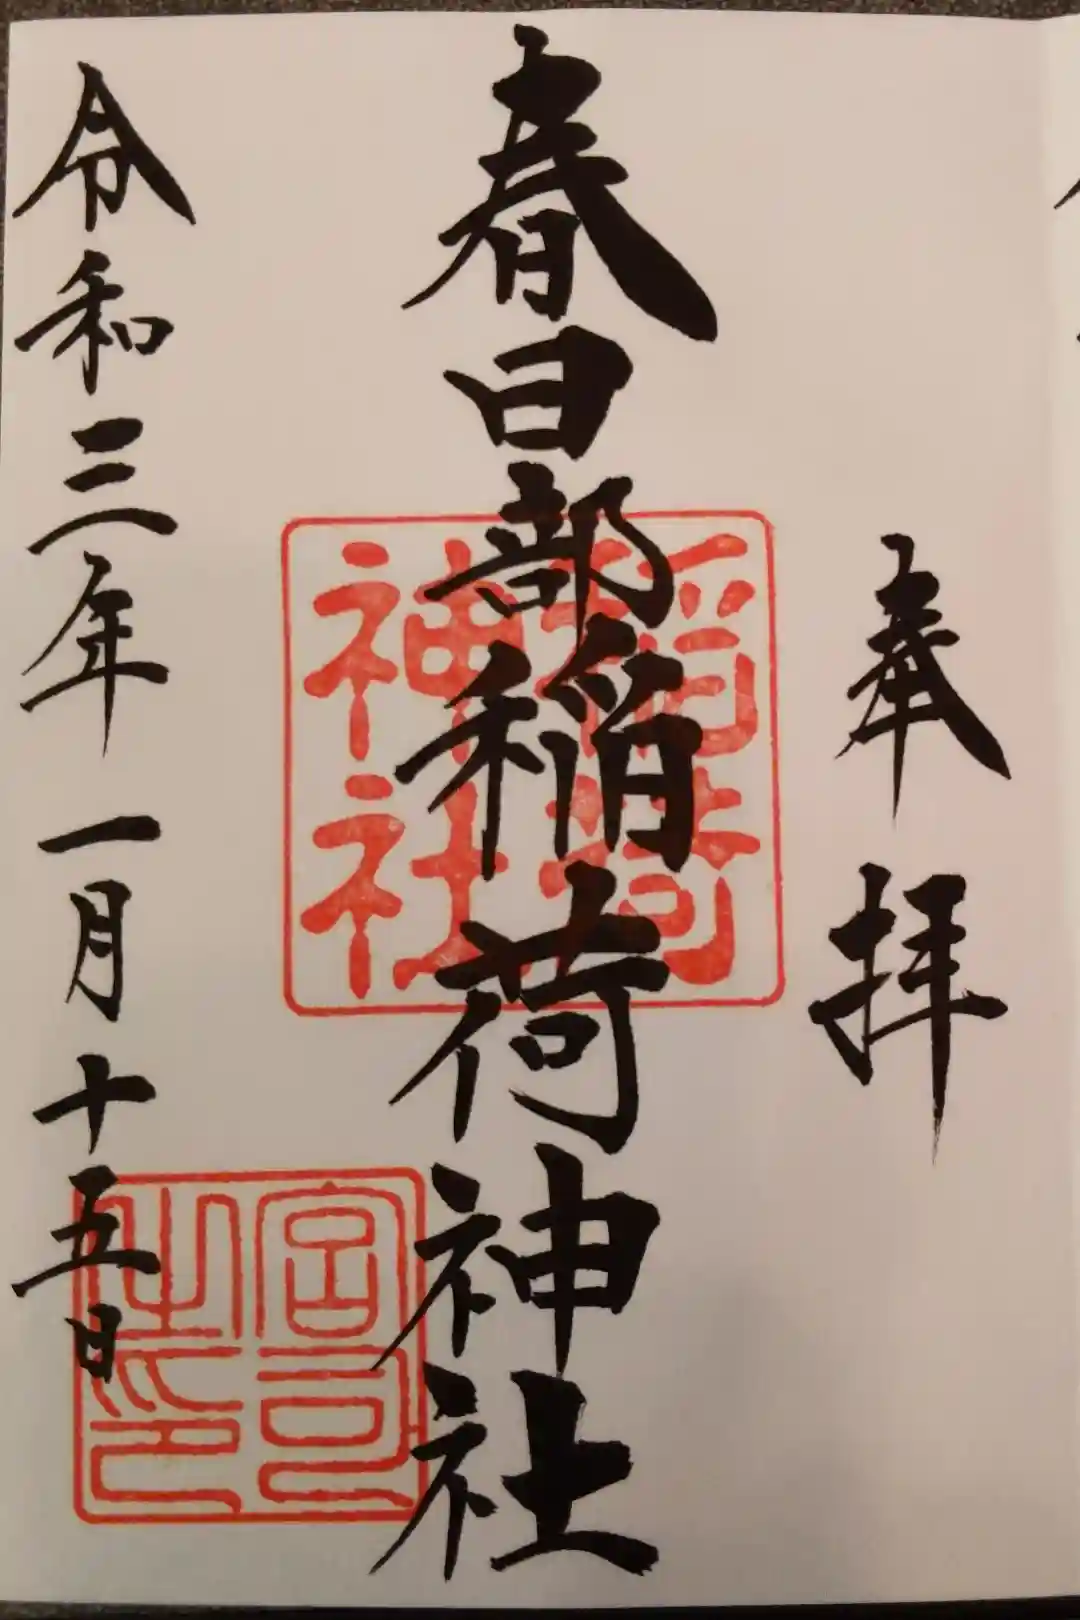 奉拝
春日部稲荷神社
稲荷
神社
令和三年一月十五日
宮司
之印